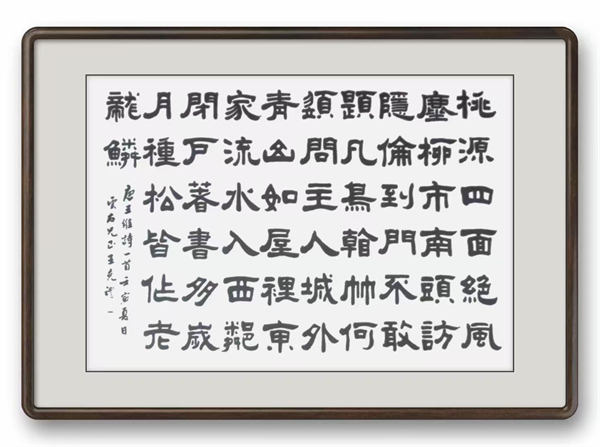 桃源四面絕風
塵柳市南頭訪
隱倫到門不敢
題凡鳥看竹何
須問主人城外
青山如屋裡東
家流水入西鄰
閉戶著書多歲
月種松皆作老
龍鱗
唐王維詩一首壬寅夏日
兄正王克